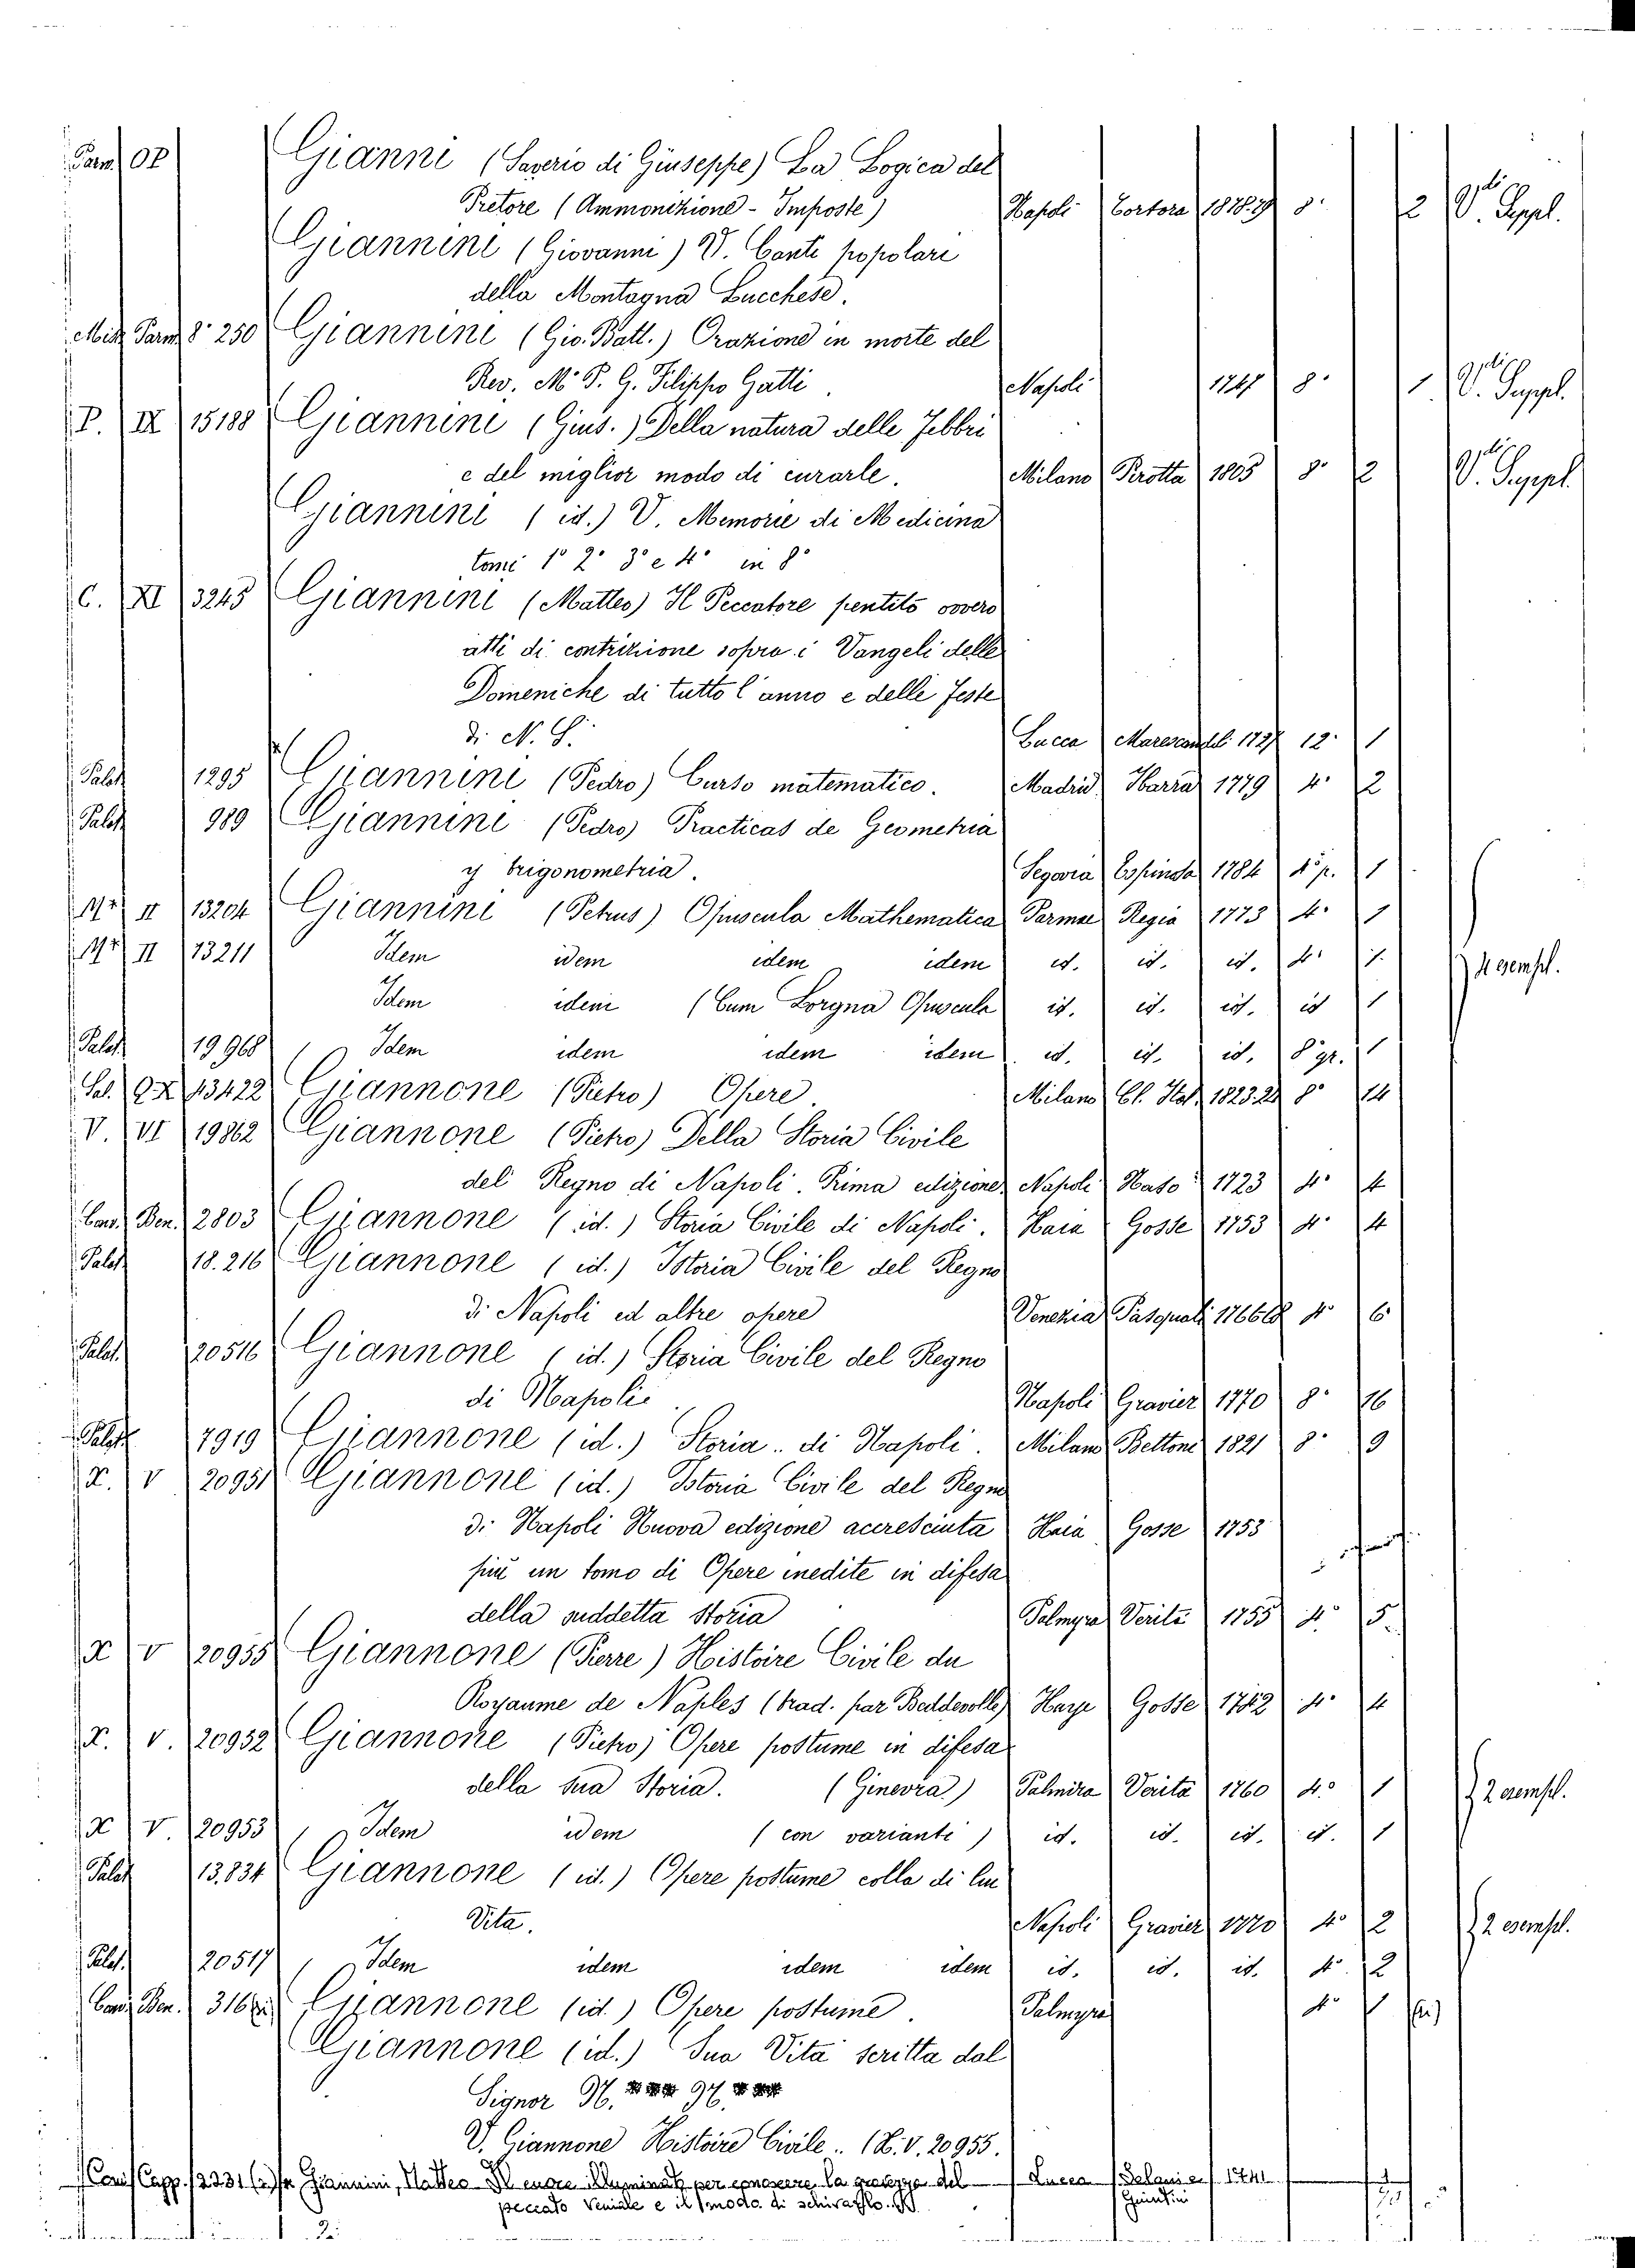 Parm. OP Gianni (Saverio di Giuseppe) La Logica del
Pretore (Ammonizione - Imposte) Napoli Tortora 1878-79 8° 2 V. Suppl.
Giannini (Giovanni) V. Canti popolari
della Montagna Lucchese.
Misc. Parm. 8° 250 Giannini (Gio. Batt.) Orazione in morte del
Rev. M° P. G. Filippo Gatti Napoli 8° 1 V. Suppl.
P. IX 15188 Giannini (Gius.) Della natura delle febbri
e del miglior modo di curarle. Milano Pirotta 1805 8° 2 V. Suppl.
Giannini (id.) V. Memorie di Medicina
tomi 1° 2° 3° e 4° in 8°
C. XI 3245 Giannini (Matteo) Il Peccatore pentito ovvero
atti di contrizione sopra i Vangeli delle
Domeniche di tutto l'anno e delle feste
di N. S. Lucca Marescandoli 12° 1
Palat. 1295 Giannini (Pedro) Curso matematico. Madrid Ibarra 1779 4° 2
Palat. 989 Giannini (Pedro) Practicas de Geometria
y trigonometria. Segovia Espinosa 1784 4° p. 1
II 13204 Giannini (Petrus) Opuscula Mathematica Parmae Regia 1773 4° 1
II 13211 Idem idem idem idem id. id. id. 4° 1 4 esempl.
Idem idem (Cum Lorgna Opuscula id. id. id. id 1
Palat. 19968 Idem idem idem idem id. id. id. 8° gr. 1
Sal. 13422 Giannone (Pietro) Opere. Milano Cl. Ital. 1823.24 8° 14
V. VI 19862 Giannone (Pietro) Della Storia Civile
del Regno di Napoli. Prima edizione Napoli Naso 1723 4° 4
Cons. Ben. 2803 Giannone (id.) Storia Civile di Napoli. Haia Gosse 1753 4° 4
Palat. 18.216 Giannone (id.) Istoria Civile del Regno
di Napoli ed altre opere Venezia Pasquali 4° 6
Palat. 20516 Giannone (id.) Storia Civile del Regno
di Napoli Napoli Gravier 1770 8° 16
Palat. 7919 Giannone (id.) Storia .. di Napoli. Milano Bettoni 1821 8° 9
X. V 20951 Giannone (id.) Istoria Civile del Regno
di Napoli Nuova edizione accresciuta Haia Gosse 1753
più un tomo di Opere inedite in difesa
della suddetta storia Palmyra Verità 1755 4° 5.
X V 20955 Giannone (Pierre) Histoire Civile du
Royaume de Naples (trad. par Beddevolle) Haye Gosse 1742 4° 4
X. V. 20952 Giannone (Pietro) Opere postume in difesa
della sua Storia. (Ginevra) Palmira Verità 1760 4° 1 2 esempl.
X V. 20953 Idem idem (con varianti) id. id. id. id. 1
Palat. 13.834 Giannone (id.) Opere postume colla di lui
Vita. Napoli Gravier 1770 4° 2 2 esempl.
Palat. 20517 Idem idem idem idem id. id. id. 4° 2
Cons. Ben. Giannone (id.) Opere postume. Palmyra 4° 1
Giannone (id.) Sua Vita scritta dal
Signor N.
V. Giannone Histoire Civile .. (X. V. 20955.
Cons. Capp. 2231 Giannini, Matteo Il cuore illuminato per conoscere la gravezza del Lucca 1741
peccato veniale e il modo di schivarlo.